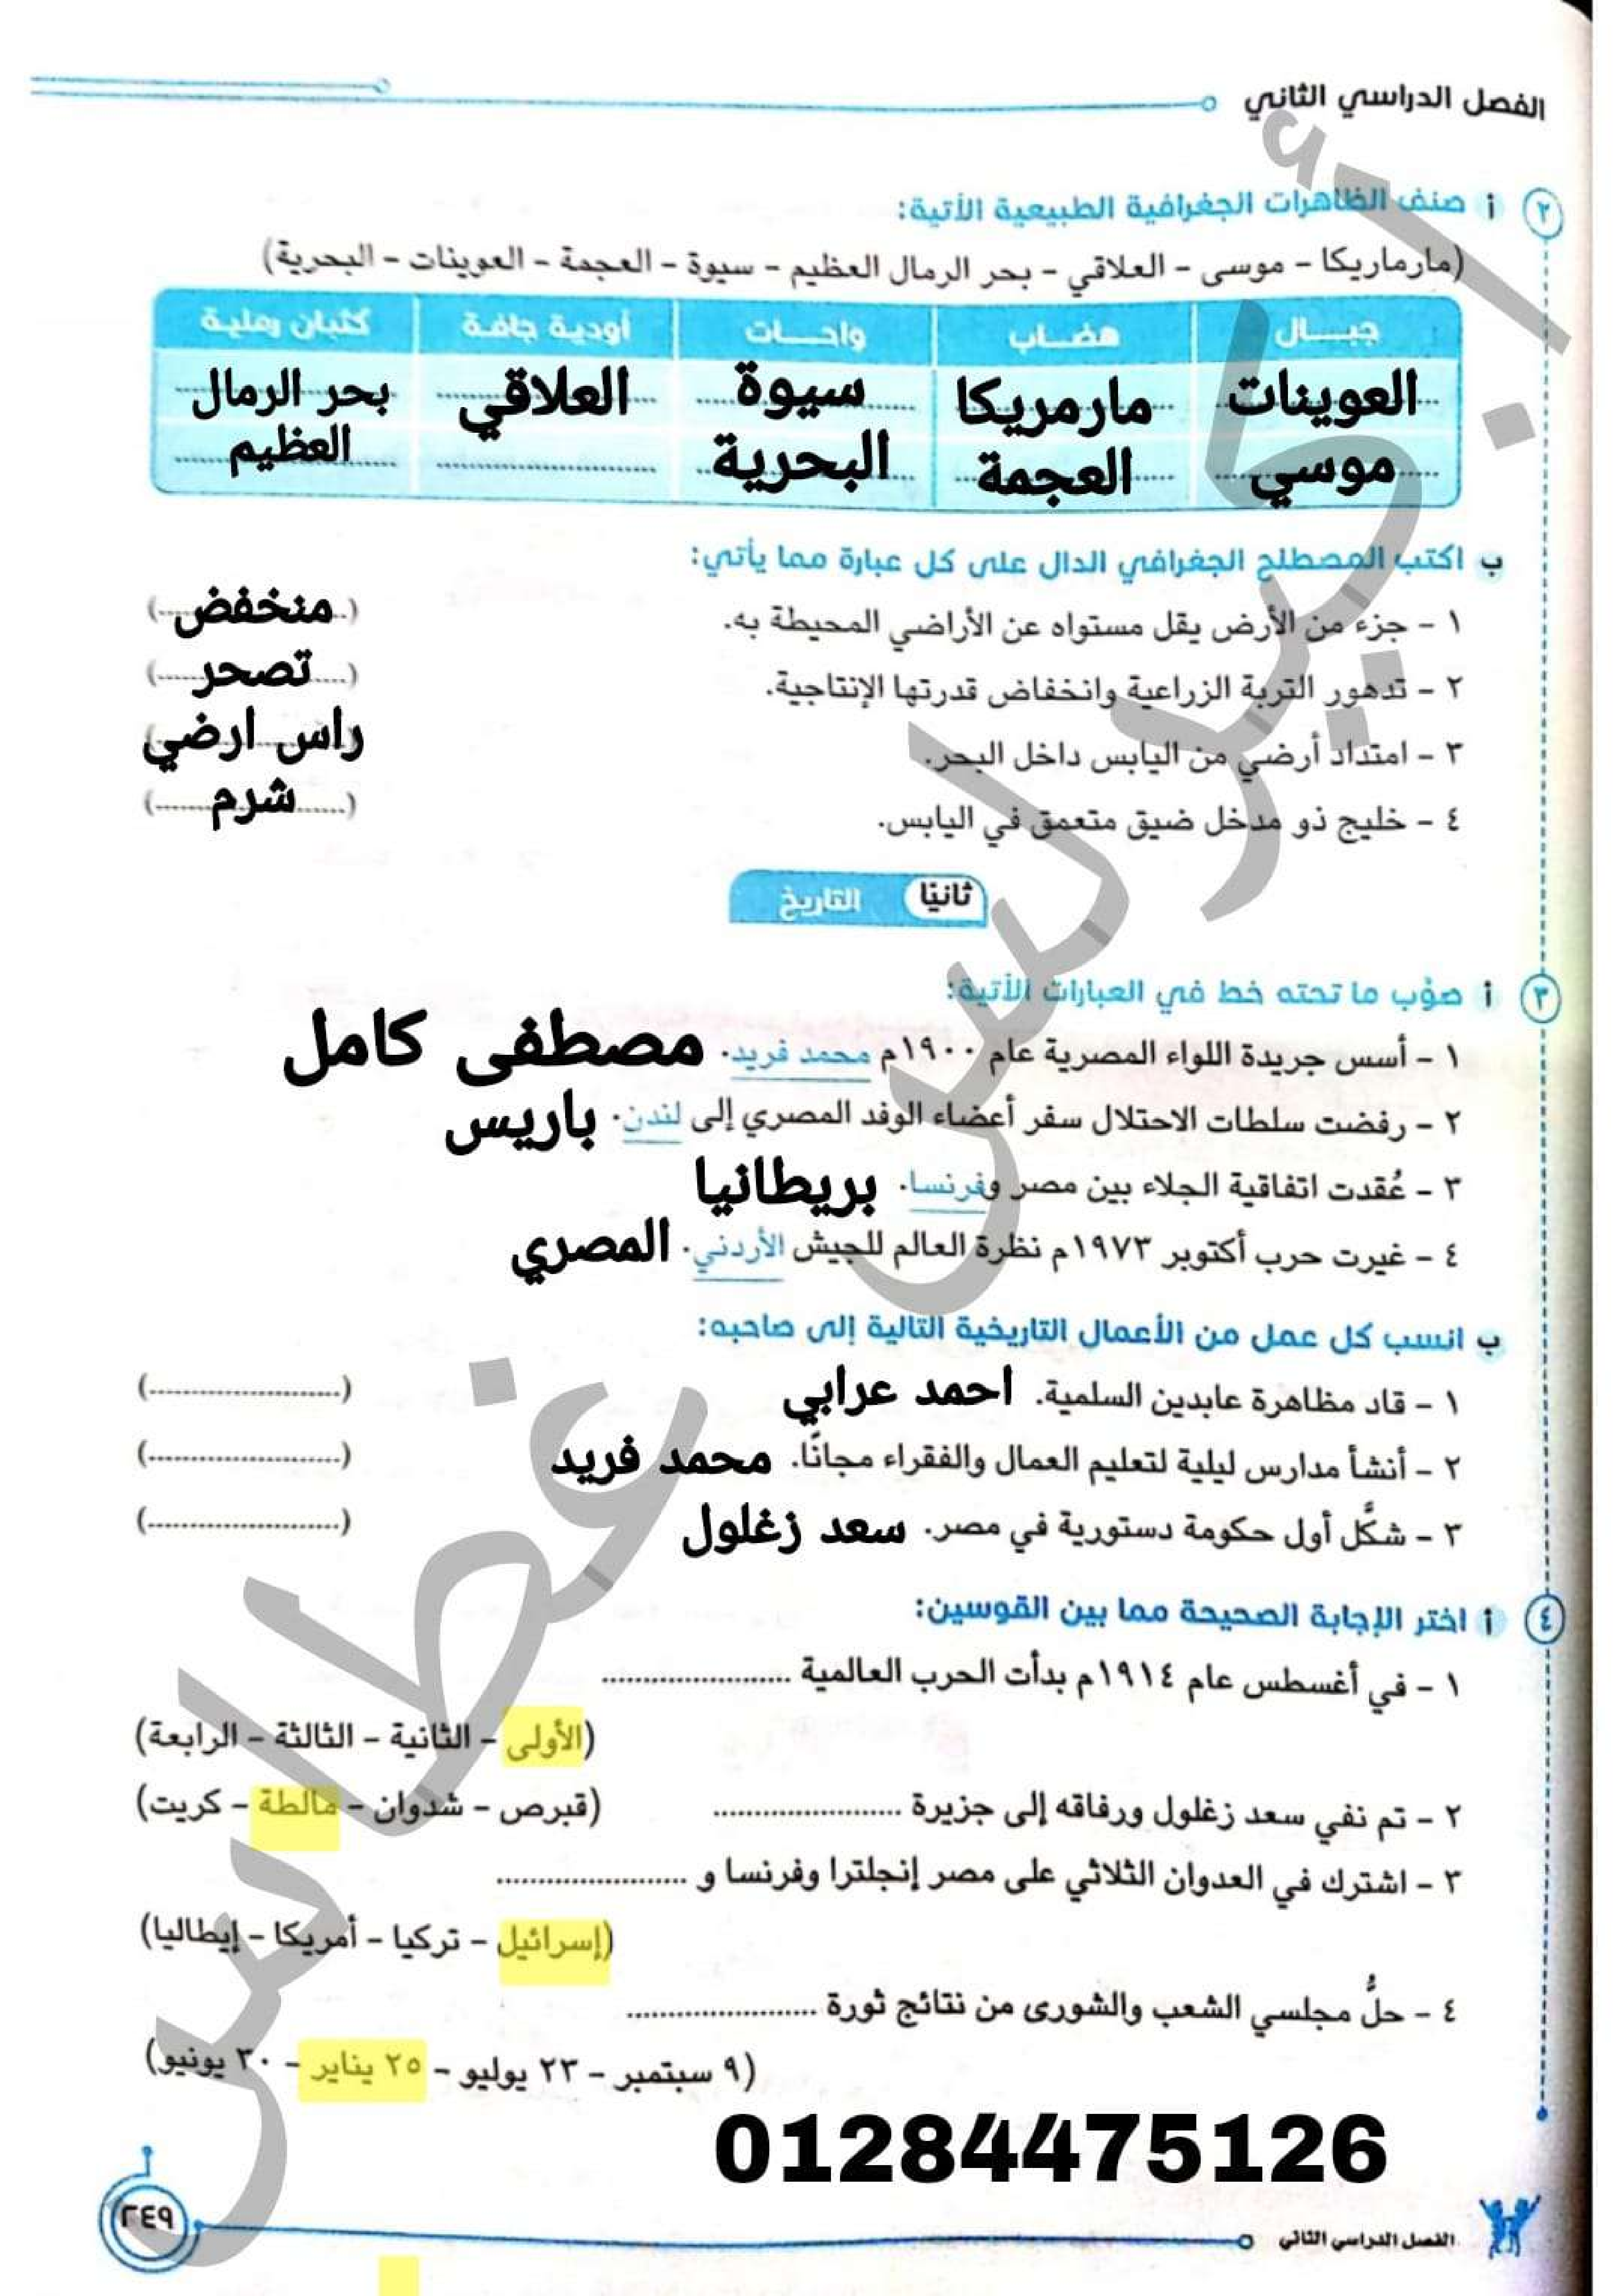 الفصل الدراسي الثاني
٢ أ صنف الظاهرات الجغرافية الطبيعية الآتية:
(مارماريكا - موسى - العلاقي - بحر الرمال العظيم - سيوة - العجمة - العوينات - البحرية)
جبـــال هضـــاب واحـــات أودية جافة كثبان رملية
العوينات مارمريكا سيوة العلاقي بحر الرمال
موسي العجمة البحرية العظيم
ب اكتب المصطلح الجغرافي الدال على كل عبارة مما يأتي:
١ - جزء من الأرض يقل مستواه عن الأراضي المحيطة به. (منخفض)
٢ - تدهور التربة الزراعية وانخفاض قدرتها الإنتاجية. (تصحر)
٣ - امتداد أرضي من اليابس داخل البحر. راس ارضي
٤ - خليج ذو مدخل ضيق متعمق في اليابس. (شرم)
ثانيًا التاريخ
٣ أ صوِّب ما تحته خط في العبارات الآتية:
١ - أسس جريدة اللواء المصرية عام ١٩٠٠م محمد فريد. مصطفى كامل
٢ - رفضت سلطات الاحتلال سفر أعضاء الوفد المصري إلى لندن. باريس
٣ - عُقدت اتفاقية الجلاء بين مصر وفرنسا. بريطانيا
٤ - غيرت حرب أكتوبر ١٩٧٣م نظرة العالم للجيش الأردني. المصري
ب انسب كل عمل من الأعمال التاريخية التالية إلى صاحبه:
١ - قاد مظاهرة عابدين السلمية. احمد عرابي (......................)
٢ - أنشأ مدارس ليلية لتعليم العمال والفقراء مجانًا. محمد فريد (......................)
٣ - شكَّل أول حكومة دستورية في مصر. سعد زغلول (......................)
٤ أ اختر الإجابة الصحيحة مما بين القوسين:
١ - في أغسطس عام ١٩١٤م بدأت الحرب العالمية ......................
(الأولى - الثانية - الثالثة - الرابعة)
٢ - تم نفي سعد زغلول ورفاقه إلى جزيرة ...................... (قبرص - شدوان - مالطة - كريت)
٣ - اشترك في العدوان الثلاثي على مصر إنجلترا وفرنسا و ......................
(إسرائيل - تركيا - أمريكا - إيطاليا)
٤ - حلُّ مجلسي الشعب والشورى من نتائج ثورة ......................
(٩ سبتمبر - ٢٣ يوليو - ٢٥ يناير - ٣٠ يونيو)
01284475126
الفصل الدراسي الثاني
٢٤٩
أ. كيرلس غطاس